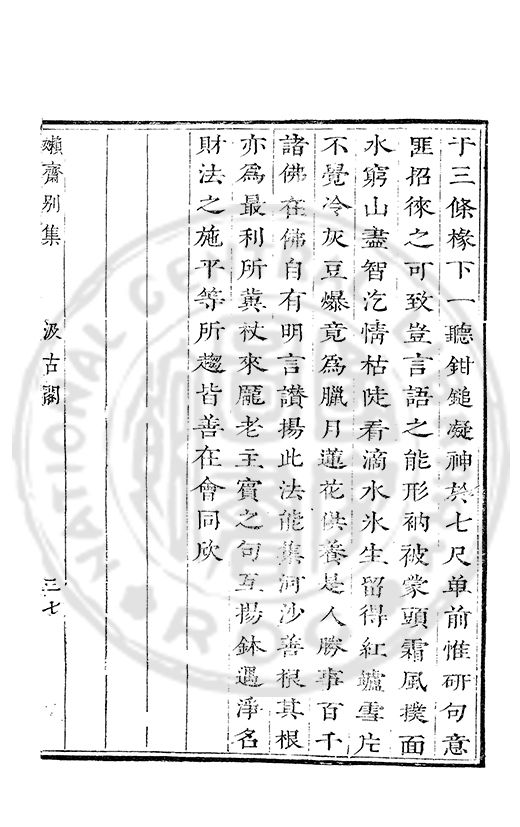 于三條椽下一聽鉗鎚凝神於七尺单前惟研句意
匪招徠之可致豈言語之能形衲被蒙頭霜風撲面
水窮山盡智汔情枯陡看滴水氷生留得紅爐雪片
不覺冷灰豆爆竟為臘月蓮花供養是人勝事百千
諸佛在佛自有明言讚揚此法能集河沙善根其根
亦為最利所冀杖來龐老主賓之句互揚鉢遇淨名
財法之施平等所趨皆善在會同欣
嬾齋別集
汲古閣
三七